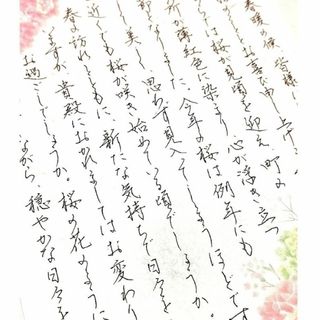 春暖の候、皆様
お喜び申し上げ
は桜が見頃を迎え、町の
所が薄紅色に染まり、心が浮き立つ
となりました。今年の桜は例年にも
して美しく、思わず見入ってしまうほどです
近でも桜が咲き始めている頃でしょうか。
春の訪れとともに、新たな気持ちで日々を
ますが、貴殿におかれましてはお変わり
お過ごしでしょうか。桜の花のように
ながら、穏やかな日々を